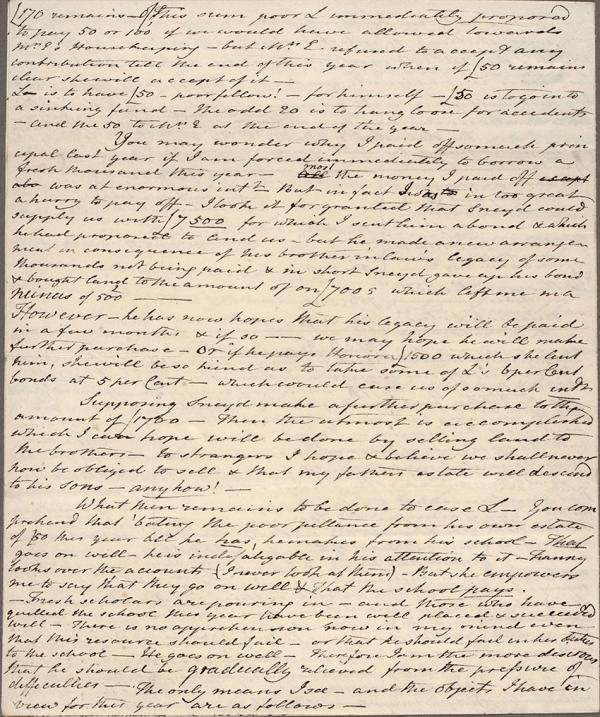 £170 remains – Of this sum poor L immediately proposed
to pay 50 or 100 if we would have allowed towards
Mrs E's Housekeeping – but Mrs E refused to accept any
contribution till the end of this year when if £50 remains
clear she will accept of it –
L – is to have £50 – poor fellow! – for himself – £50 is to go into
a sinking fund – The odd 20 is to hang loose for accidents
– and the 50 to Mrs E at the end of the year –
You may wonder why I paid off so much prin
cipal last year if I am forced immediately to borrow a
fresh thousand this year – most
the money I paid off
was at enormous intt But in fact I was in too great
a hurry to pay off – I took it for granted that Sneyd could
supply us with £7500 for which I sent him a bond & which
he had proposed to lend us – but he made a new arrange
ment in consequence of his brother in laws legacy of some
thousands not being paid & in short Sneyd gave up his bond
& bought land to the amount of on £7005 which left me in a
minus of 500 –
However – he has now hopes that his legacy will be paid
in a few months & if so – we may hope he will make
further purchase – Or if he pays Honora £1500 which she lent
him, she will be so kind as to take some of L's 6 per Cent
bonds at 5 per Cent – which would ease us of so much intt
Supposing Sneyd make a further purchase to the
amount of £1700 – Then the utmost is accomplished
which I can hope will be done by selling land to
the brothers – to strangers I hope & believe we shall never
now be obliged to sell & that my fathers estate will descend
to his sons – any how! –
What then remains to be done to ease L – You com
prehend that beating the poor pittance from his own estate
of £50 this year all he has, he makes from his school – That
goes on well – he is indefatigable in his attention to it – Fanny
looks over the accounts (I never look at them) – But she empowers
me to say that they go on well & that the school pays.
– Fresh scholars are pouring in – and those who have
quitted the school this year have been well placed & succeeded
well – There is no apprehension now in my mind even
that this resource should fail – or that he should fail in his duties
to the school – He goes on well – Therefore I am the more desirous
that he should be gradually relieved from the pressure of
difficulties – The only means I see – and the objects I have in
view for this year are as follows –